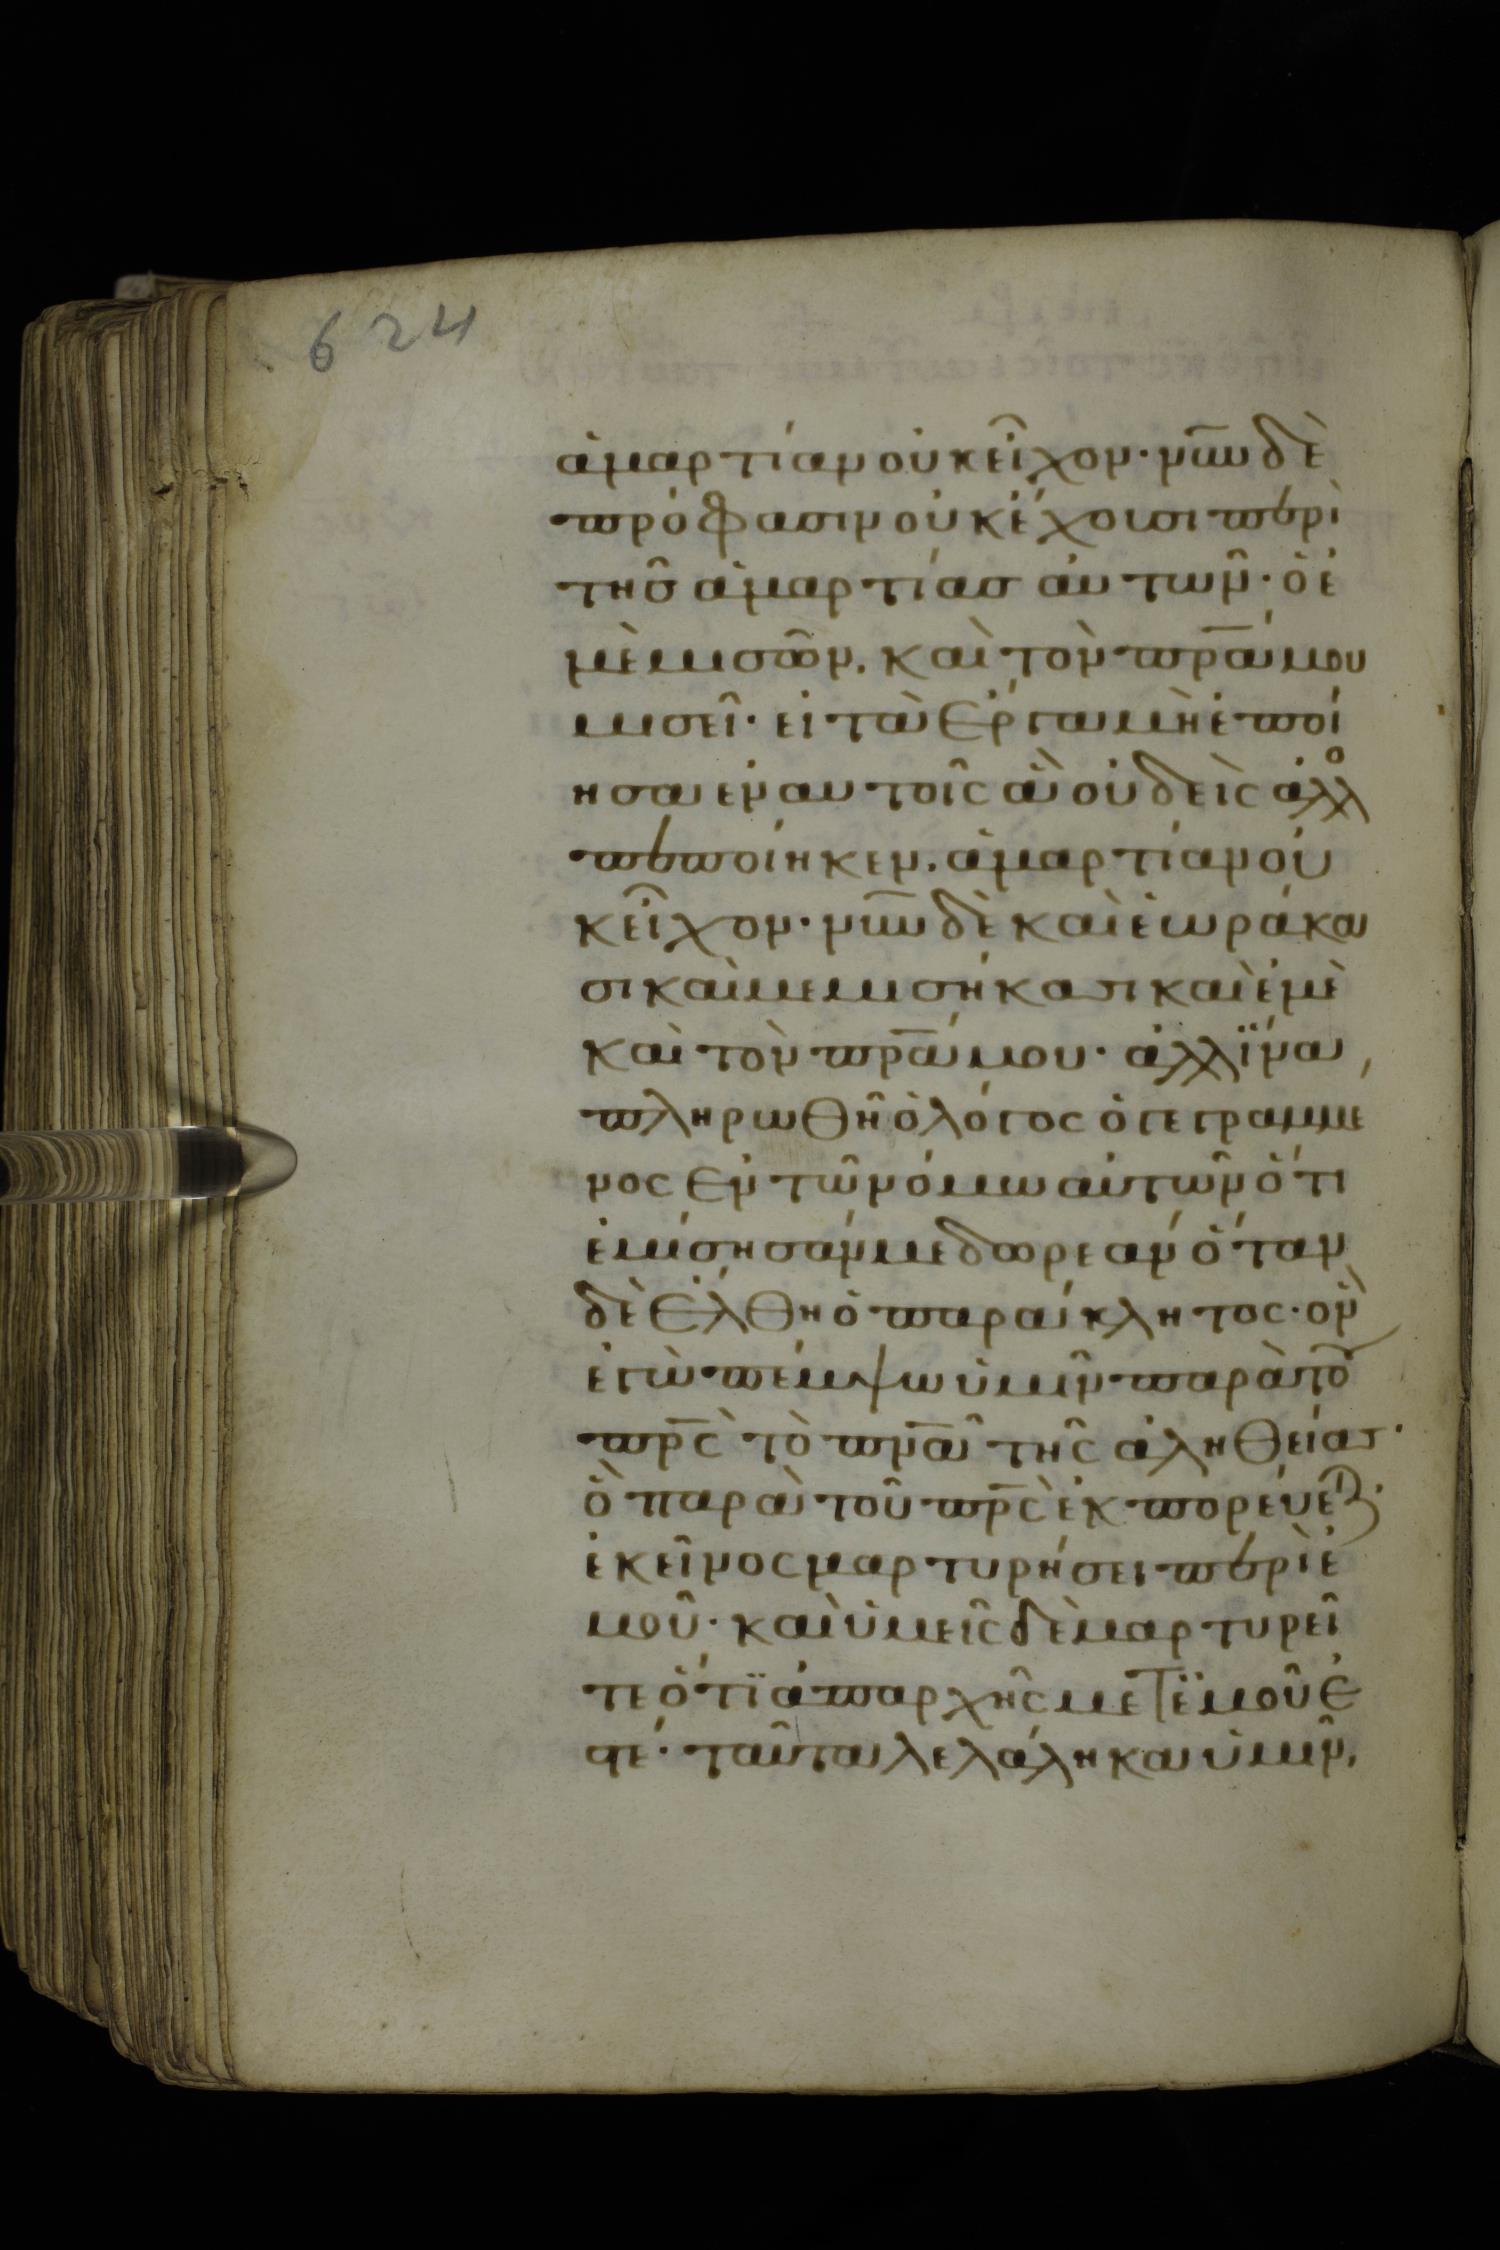 624
ἁμαρτίαν οὐκ εἶχον· νῦν δὲ
πρόφασιν οὐκ ἔχουσι περὶ
τῆς ἁμαρτίας αὐτῶν· ὁ ἐ
μὲ μισῶν, καὶ τὸν πρ̅α μου
μισεῖ· εἰ τὰ ἔργα μὴ ἐποί
ησα ἐν αὐτοῖς ἃ οὐδεὶς ἄλλο
πεποίηκεν, ἁμαρτίαν οὐ
κ εἶχον· νῦν δὲ καὶ ἑωράκα
σι καὶ μεμισήκασι καὶ ἐμὲ
καὶ τὸν πρ̅α μου· ἀλλ ἵνα
πληρωθῆ ὁ λόγος ὁ γεγραμμέ
νος ἐν τῶ νόμω αὐτῶν ὅτι
ἐμίσησάν με δωρεάν ὅταν
δὲ ἔλθη ὁ παράκλητος· ὃν
ἐγὼ πέμψω ὑμῖν παρὰ τοῦ
πρ̅ς τὸ πν̅α τῆς ἀληθείας·
ὃ παρὰ τοῦ πρ̅ς ἐκπορεύεται·
ἐκεῖνος μαρτυρήσει περὶ ἐ
μοῦ· καὶ ὑμεῖς δὲ μαρτυρεῖ
τε ὅτϊ ἀπαρχῆς μετ ἐμοῦ ἐ
στέ· ταῦτα λελάληκα ὑμῖν,